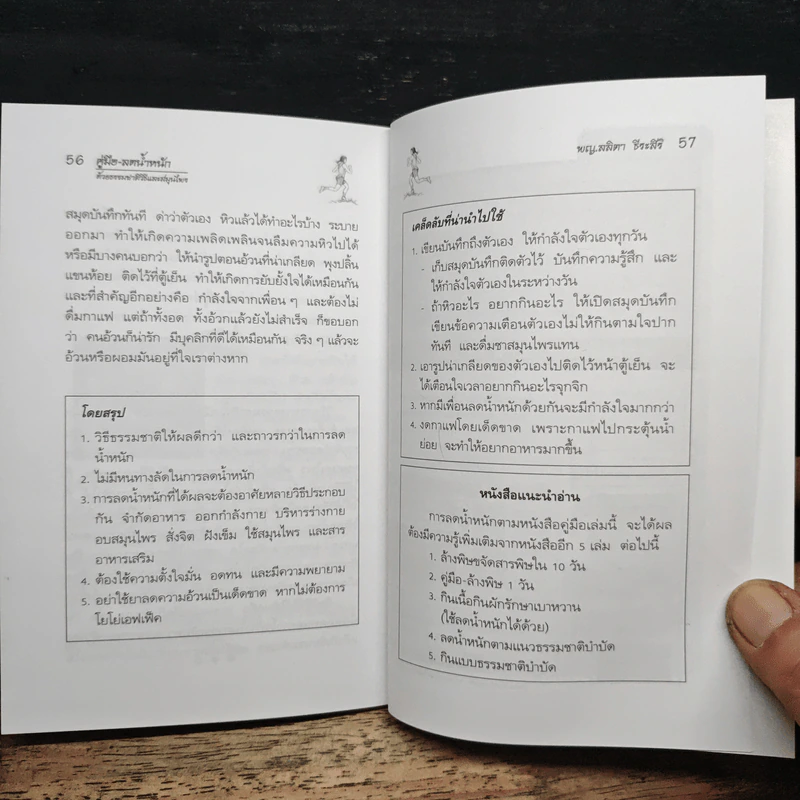 56 คู่มือ-ลดน้ำหนัก
ด้วยธรรมชาติวิธีและสมุนไพร
สมุดบันทึกทันที ด่าว่าตัวเอง หิวแล้วได้ทำอะไรบ้าง ระบาย
ออกมา ทำให้เกิดความเพลิดเพลินจนลืมความหิวไปได้
หรือมีบางคนบอกว่า ให้นำรูปตอนอ้วนที่น่าเกลียด พุงปลิ้น
แขนห้อย ติดไว้ที่ตู้เย็น ทำให้เกิดการยับยั้งใจได้เหมือนกัน
และที่สำคัญอีกอย่างคือ กำลังใจจากเพื่อน ๆ และต้องไม่
ดื่มกาแฟ แต่ถ้าทั้งอด ทั้งอ้วกแล้วยังไม่สำเร็จ ก็ขอบอก
ว่า คนอ้วนก็น่ารัก มีบุคลิกที่ดีได้เหมือนกัน จริง ๆ แล้วจะ
อ้วนหรือผอมมันอยู่ที่ใจเราต่างหาก
โดยสรุป
1. วิธีธรรมชาติให้ผลดีกว่า และถาวรกว่าในการลด
น้ำหนัก
2. ไม่มีหนทางลัดในการลดน้ำหนัก
3. การลดน้ำหนักที่ได้ผลจะต้องอาศัยหลายวิธีประกอบ
กัน จำกัดอาหาร ออกกำลังกาย บริหารร่างกาย
อบสมุนไพร สั่งจิต ฝังเข็ม ใช้สมุนไพร และสาร
อาหารเสริม
4. ต้องใช้ความตั้งใจมั่น อดทน และมีความพยายาม
5. อย่าใช้ยาลดความอ้วนเป็นเด็ดขาด หากไม่ต้องการ
โยโย่เอฟเฟ็ค
พญ.ลลิตา ธีระสิริ 57
เคล็ดลับที่น่านำไปใช้
1. เขียนบันทึกถึงตัวเอง ให้กำลังใจตัวเองทุกวัน
- เก็บสมุดบันทึกติดตัวไว้ บันทึกความรู้สึก และ
ให้กำลังใจตัวเองในระหว่างวัน
- ถ้าหิวอะไร อยากกินอะไร ให้เปิดสมุดบันทึก
เขียนข้อความเตือนตัวเองไม่ให้กินตามใจปาก
ทันที และดื่มชาสมุนไพรแทน
2. เอารูปน่าเกลียดของตัวเองไปติดไว้หน้าตู้เย็น จะ
ได้เตือนใจเวลาอยากกินอะไรจุกจิก
3. หากมีเพื่อนลดน้ำหนักด้วยกันจะมีกำลังใจมากกว่า
4. งดกาแฟโดยเด็ดขาด เพราะกาแฟไปกระตุ้นน้ำ
ย่อย จะทำให้อยากอาหารมากขึ้น
หนังสือแนะนำอ่าน
การลดน้ำหนักตามหนังสือคู่มือเล่มนี้ จะได้ผล
ต้องมีความรู้เพิ่มเติมจากหนังสืออีก 5 เล่ม ต่อไปนี้
1. ล้างพิษขจัดสารพิษใน 10 วัน
2. คู่มือ-ล้างพิษ 1 วัน
3. กินเนื้อกินผักรักษาเบาหวาน
(ใช้ลดน้ำหนักได้ด้วย)
4. ลดน้ำหนักตามแนวธรรมชาติบำบัด
5. กินแบบธรรมชาติบำบัด